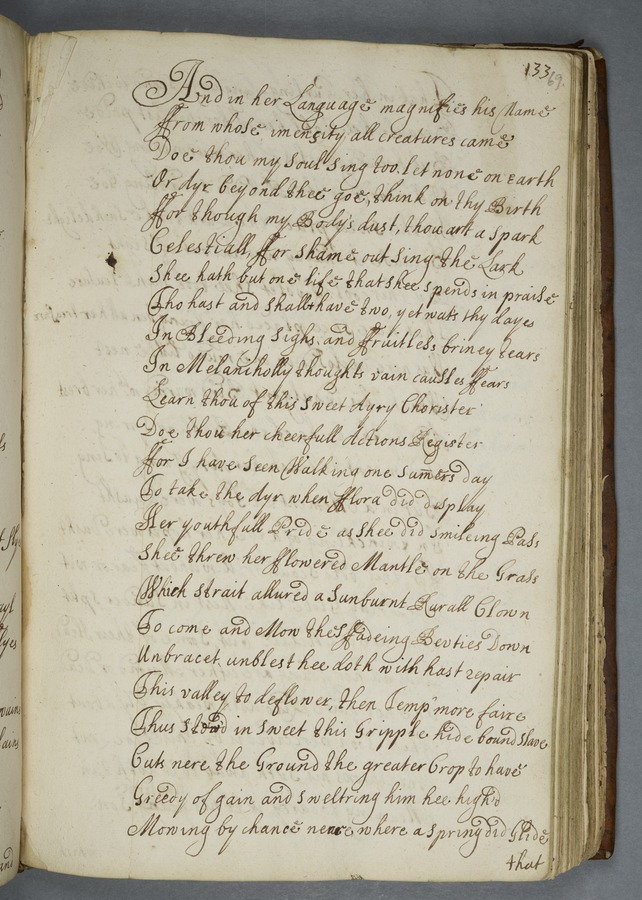 133 69.
And in her Language magnifies his Name
ffrom whose imensity all creatures came
Doe thou my Soul Sing too let none on Earth
Or Ayr beyond thee goe, think on thy Birth
ffor though my Body's dust, thou art a spark
Celestiall, ffor shame out sing the Lark
Shee hath but one life that shee spends in praise
Tho hast and shallt have two, yet wats thy dayes
In Bleeding sighs and ffruitless briney tears
In Melancholly thoughts vain causles ffears
Learn thou of this sweet Ayry Chorister
Doe thou her cheerfull Actions Register
ffor I have seen Walking one sumers day
To take the Ayr when fflora did display
Her youthfull Pride as shee did smileing Pass
Shee threw her fflowered Mantle on the Grass
Which strait allured a Sunburnt Rurall Clown
To come and Mow thes ffadeing Bevties Down
Unbracet unblest hee doth with hast repair
This valley to deflower, then Temp' more faire
Thus in sweet this Gripple hide bound slave
Cuts nere the Ground the greater Crop to have
Greedy of gain and sweltring him hee high'd
Mowing by chance nere where a spring did Glide
that